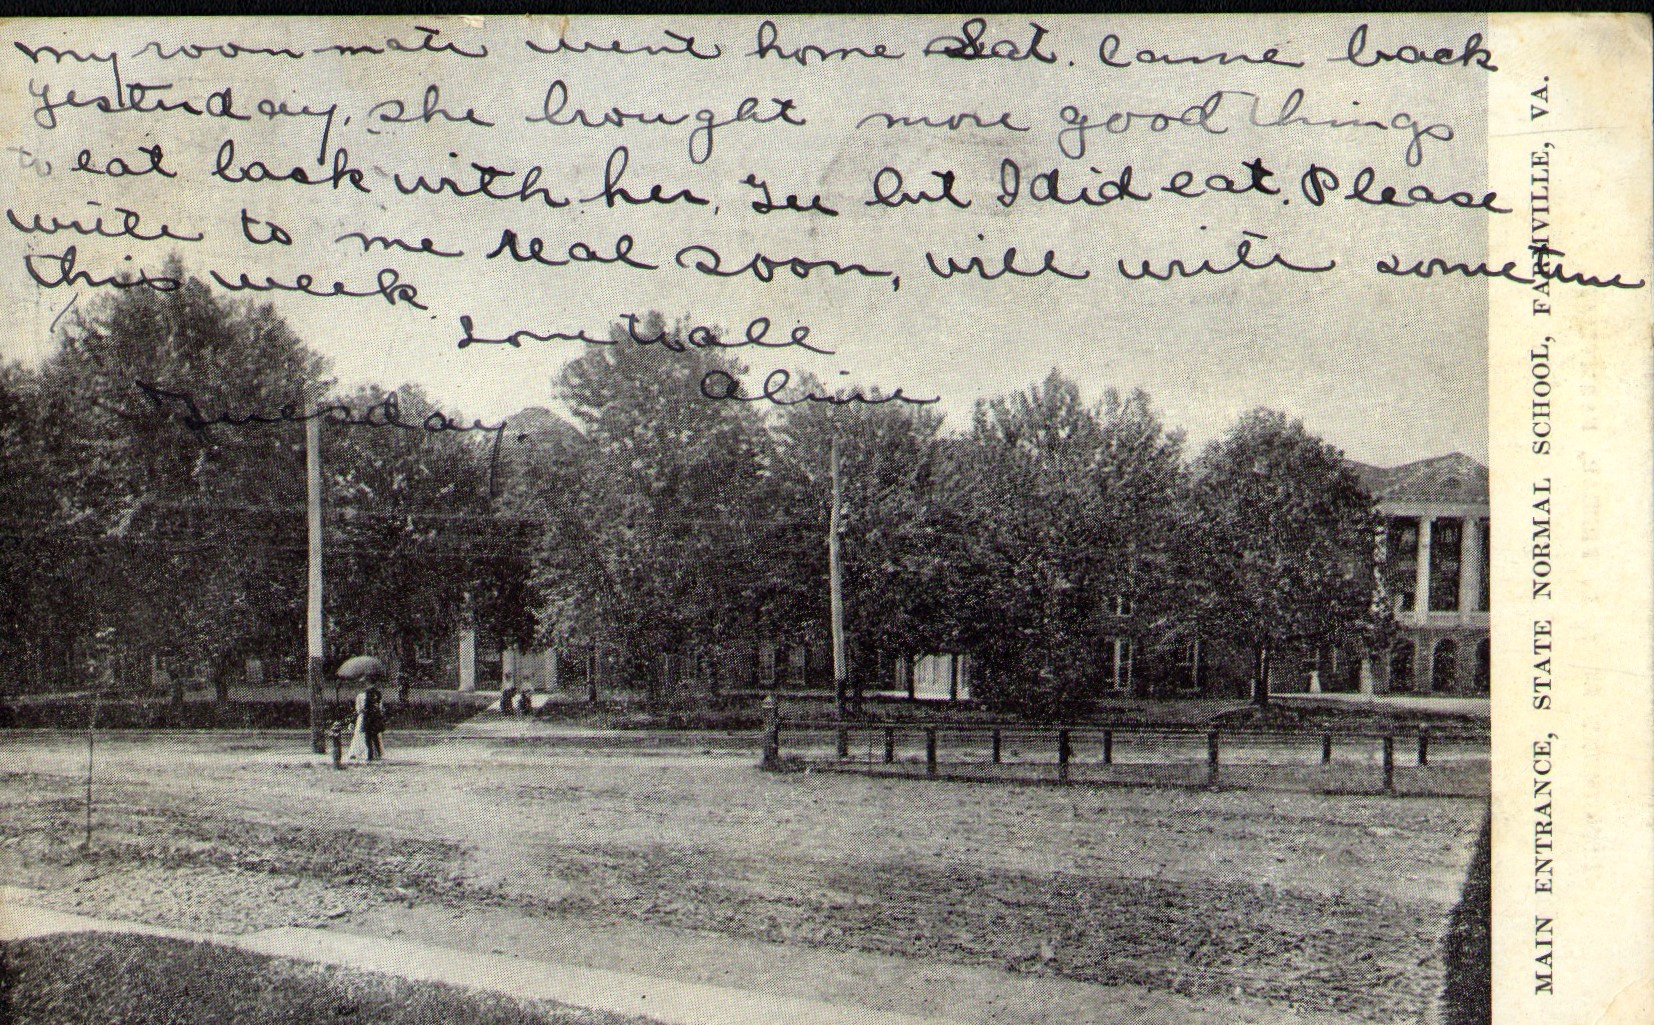 my room-mate went home Sat. Came back
yesterday, she brought more good things
to eat back with her, Gee but I did eat. Please
write to me real soon, will write sometime
this week.
Love to all
Aline
Tuesday.
MAIN ENTRANCE, STATE NORMAL SCHOOL, FARMVILLE, VA.